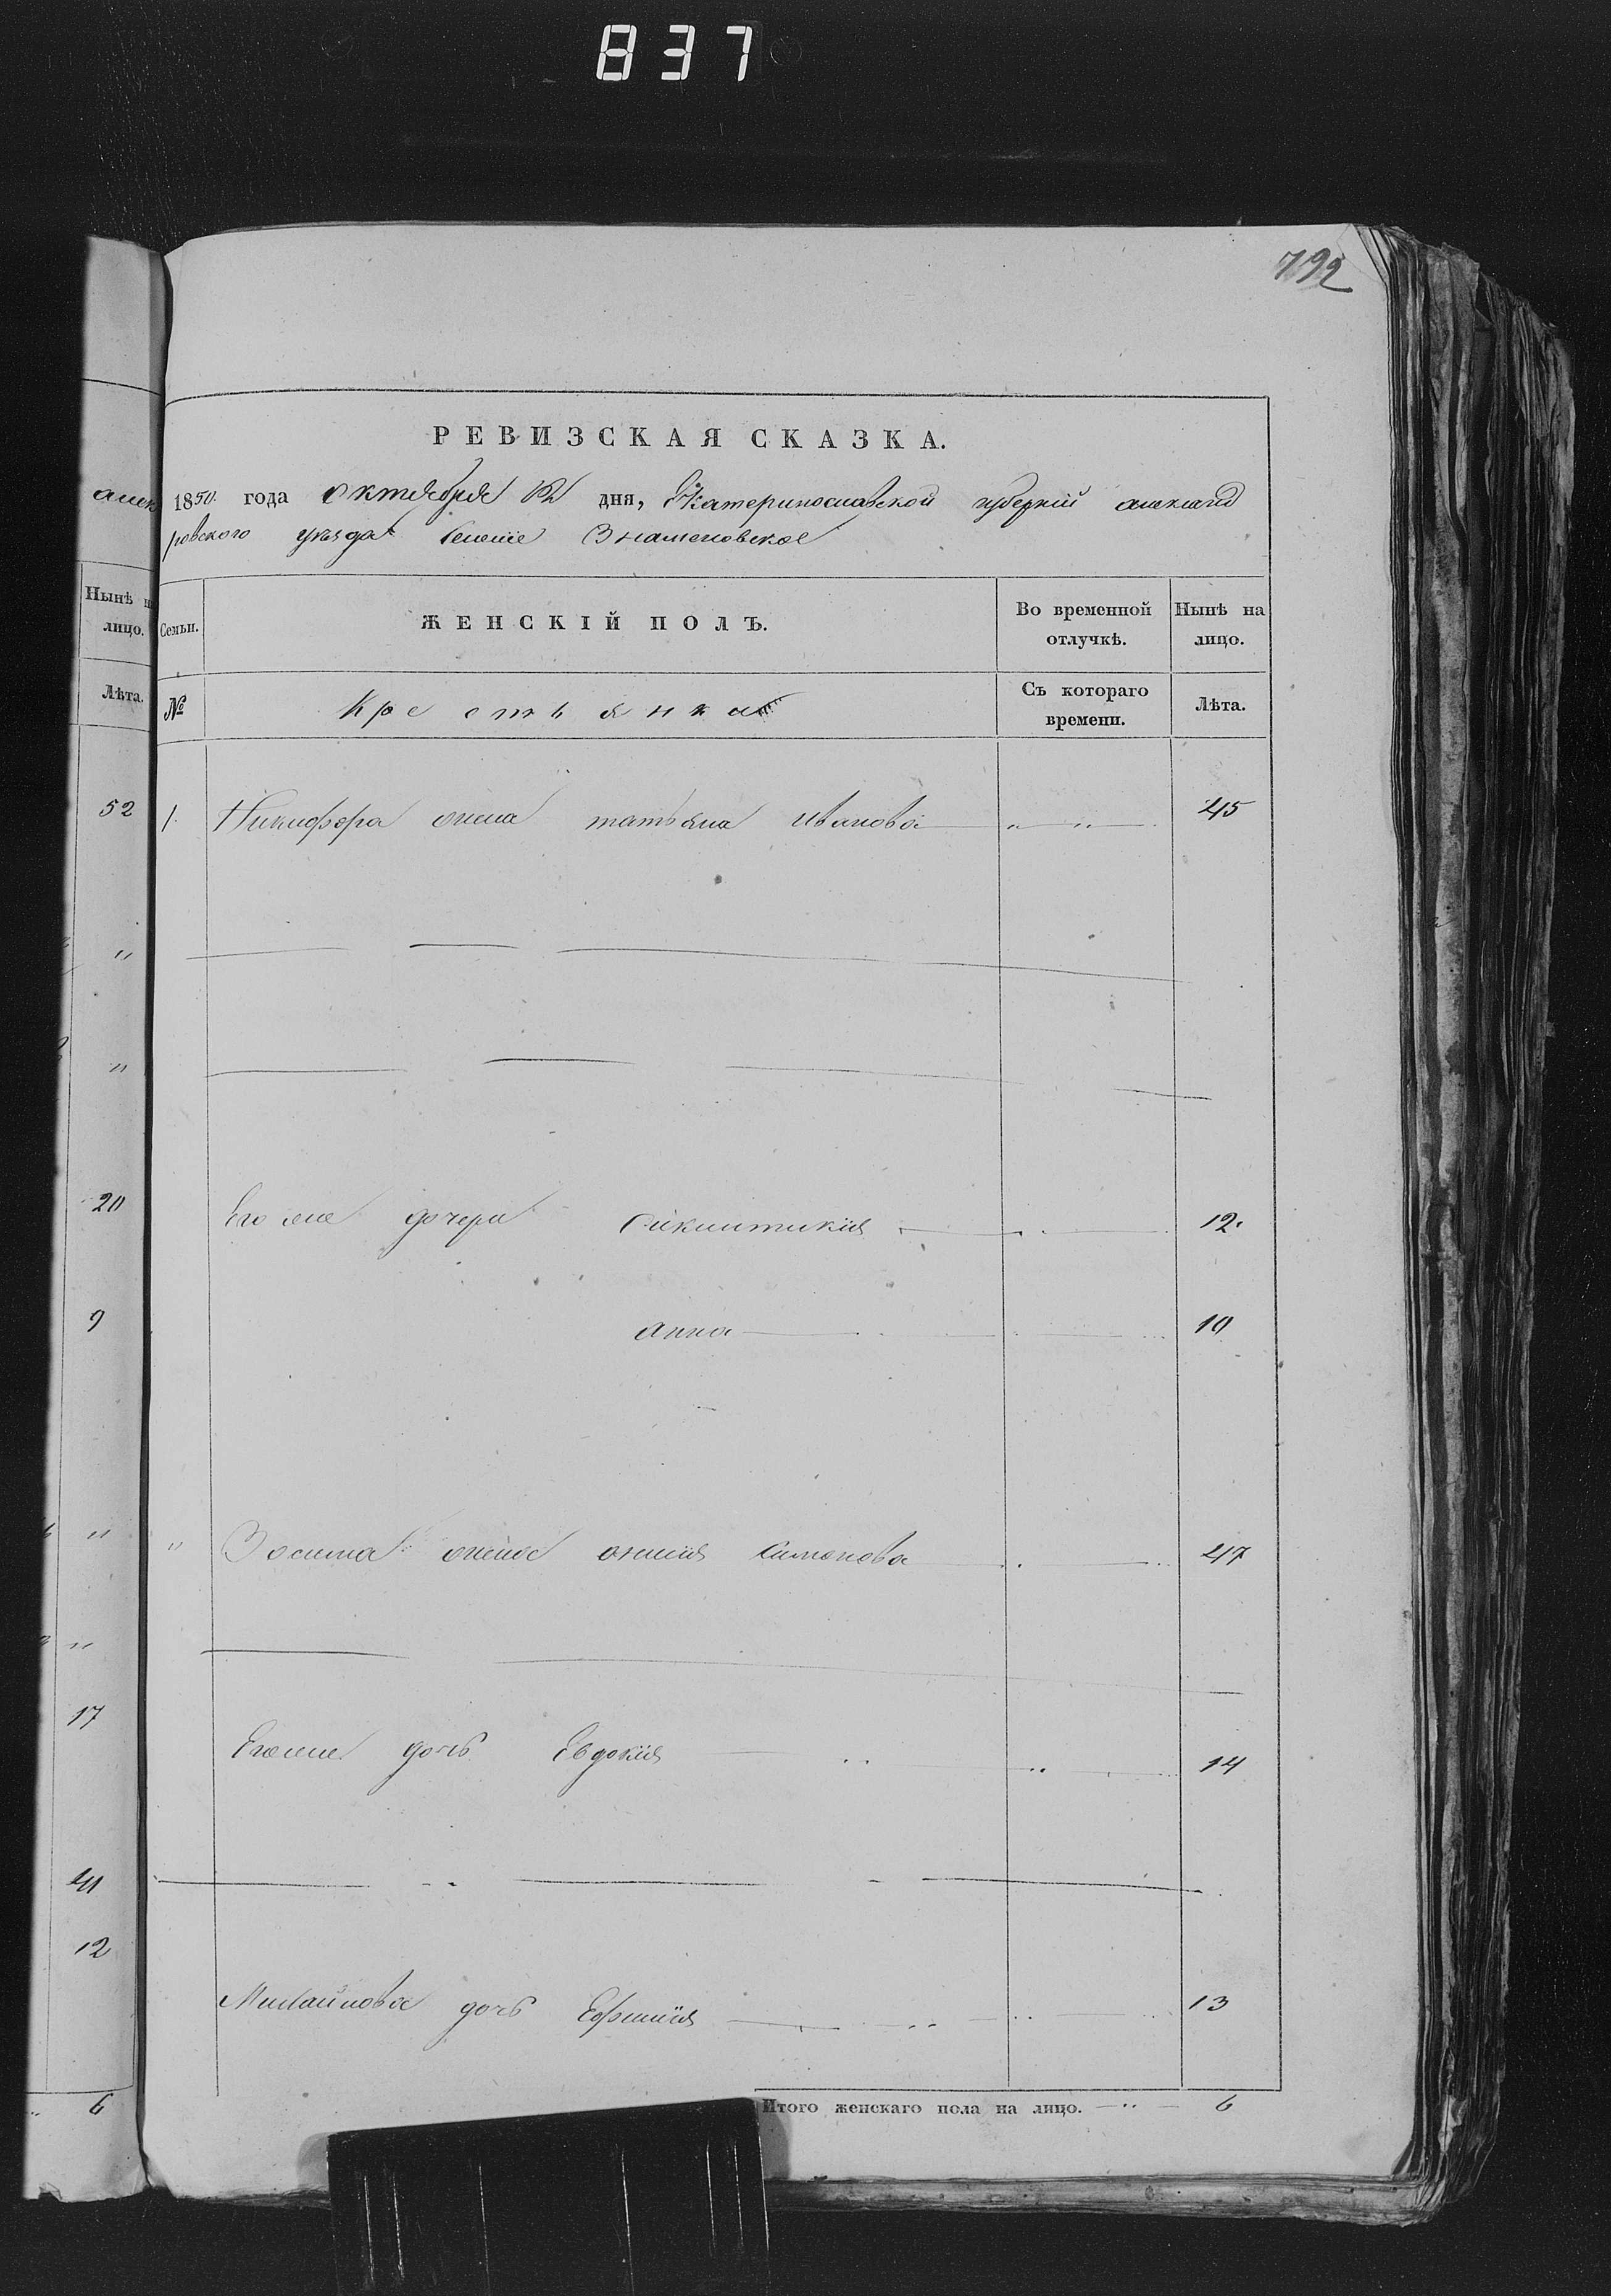 837
792
РЕВИЗСКАЯ СКАЗКА.
1850 года октября дня, Екатеринославской губерній александ
ровского уезда селеніе Знаменовское
Семьи.
ЖЕНСКІЙ ПОЛЪ.
Во временной отлучкѣ.
Нынѣ на лицо.
№
Крестьянка
Съ котораго времени.
Лѣта.
1. Никифора жена татьяна Иванова 45
Его же дочери 12.
анна 10
" Зосима жена Симонова 47
Его же дочь Евдокия 14
дочь Ефимия 13
Итого женскаго пола на лицо. 6
алек
Нынѣ н
лицо.
Лѣта.
52
"
"
20
9
"
"
17
41
12
6